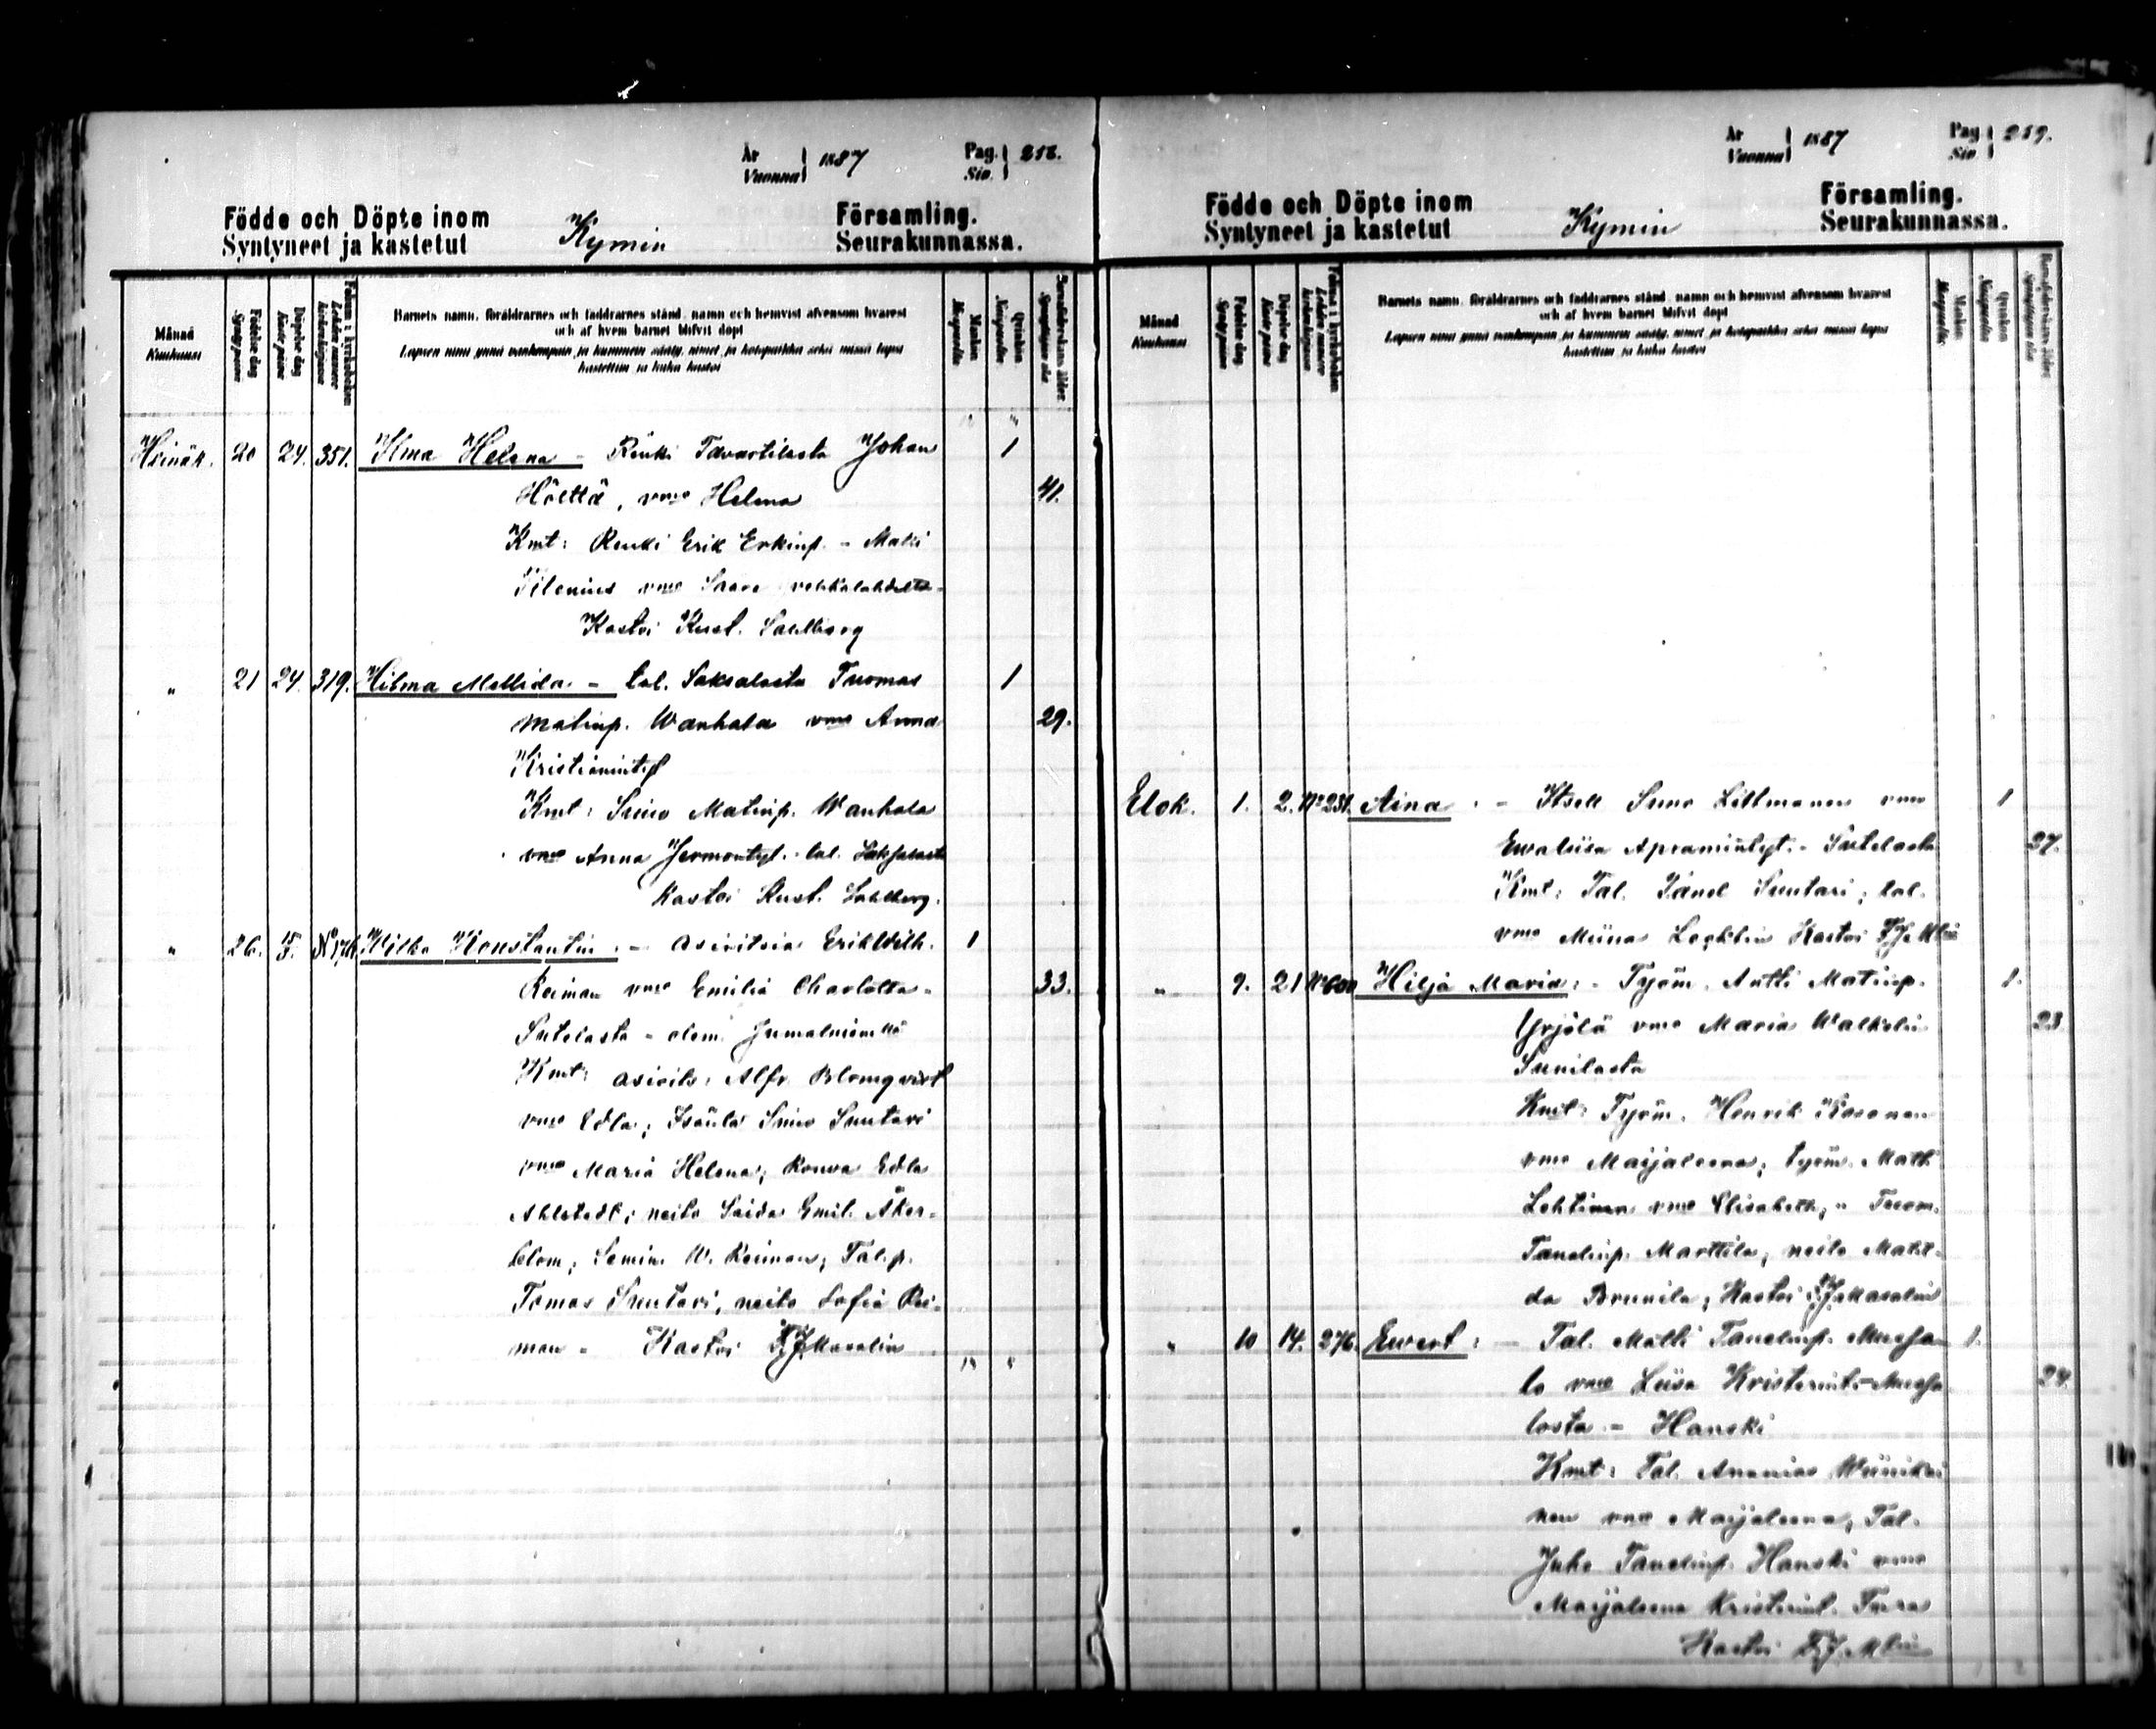 År
Vuonna 1887 Pag. Siv. 218.
Födde och Döpte inom Kymin Församling.
Syntyneet ja kastetut Seurakunnassa.
Månad Kuukausi
Födelse dag Syntypäivä
Döpelse dag Kaste päivä
Barnets namn, föräldrarnes och faddrarnes stånd, namn och hemvist äfvensom hvarest
och af hvem barnet blifvit döpt
Lapsen nimi ynnä vanhempain ja kummein sääty, nimet ja kotopaikka sekä missä lapsi
kastettiin ja kuka kastoi
Mankön Miespuolia
Qvinkön Naispuolia
Heinäk. 20 24. 351. Ilma Helena - Renki Tavastilasta Johan 1
Hölttä, vmo Helena 41.
Kmt: Renki Erik Erkinp. - Matti
vmo Saara
Kastoi Kust. Sahlberg
" 21 24. 319. Hilma Mellida - tal. Saksalasta Tuomas 1
Matinp. Wanhala vmo Anna 29.
Kristianintyt
Kmt: Simo Matinp. Wanhala
vmo Anna tal. Saksalasta
Kastoi Kust. Sahlberg.
" 26. Wilho Konstantin - asioitsia Erik Wilh. 1
Reiman vmo Emilia Charlotta - 33.
Sutelasta - olem. Jumalniemellä
Kmt: asioits. Alfr. Blomqvist
vmo Edla; Simo Suutari
vmo Maria Helena; Rouva Edla
Ahlstedt; neito Saida Emil. Åker-
blom; Semin. W. Reiman; Tal.p.
Tomas Suutari, neito Sofia Rei-
man - Kastoi F J Masalin
År
Vuonna 1887 Pag. Siv. 219.
Födde och Döpte inom Kymin Församling.
Syntyneet ja kastetut Seurakunnassa.
Månad Kuukausi
Födelse dag Syntypäivä
Döpelse dag Kaste päivä
Barnets namn, föräldrarnes och faddrarnes stånd, namn och hemvist äfvensom hvarest
och af hvem barnet blifvit döpt
Lapsen nimi ynnä vanhempain ja kummein sääty, nimet ja kotopaikka sekä missä lapsi
kastettiin ja kuka kastoi
Mankön Miespuolia
Qvinkön Naispuolia
Elok. 1. 2. No 231. Aina - Itsell. Simo Littmanen vmo 1
Ewaliisa - Sutelasta 27.
Kmt: Tal. Tanel Suutari; tal.
vmo Miina Kastoi F J Mlin
" 9. 21 Hilja Maria: - Työm. Antti Matinp. 1.
Yrjölä vmo Maria Walkelin 23
Sunilasta
Kmt: Työm. Henrik Kosonen
vmo Maijaleena; työm. Matti
Lehtinen vmo Elisabeth; " Tuom.
Tanelinp. Marttila; neito Matil-
da Brunila; Kastoi F J Masalin
" 10 14. 276. Ewert: - Tal. Matti Tanelinp. Mussa- 1.
lo vmo Liisa Kristerint. - Mussa 24.
losta - Hanski
Kmt: Tal. Ananias Wiinikai
nen vmo Maijaleena; Tal.
Juho Tanelinp. Hanski vmo
Maijaleena Kristerint.
Kastoi F J Mlin